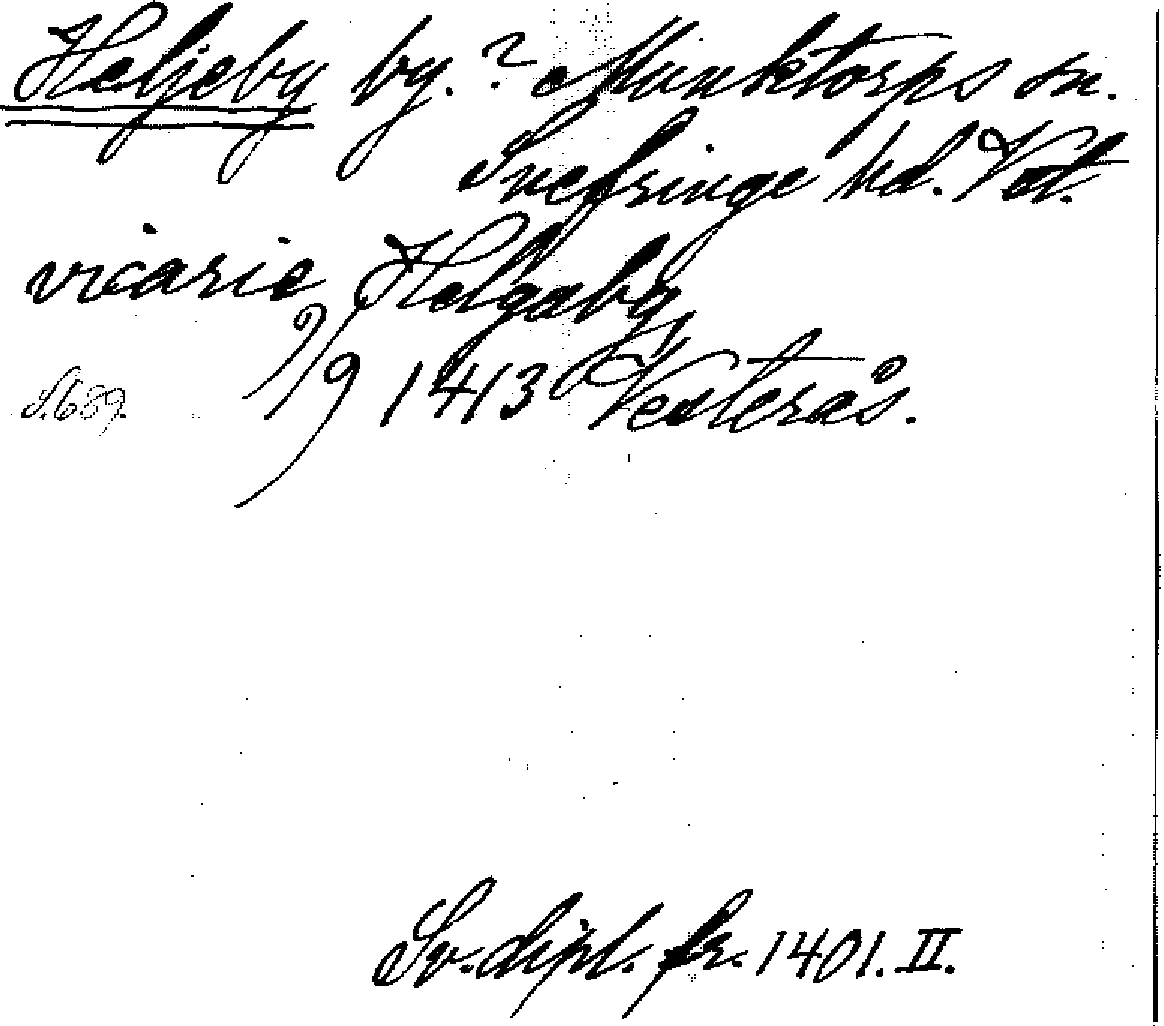 Heljeby by. ? Munktorps sn.
Snefringe hd. Vstl.
vicarie Helgaby,
S. 689. 9/9 1413 Vesterås.
Sv. dipl. fr. 1401. II.